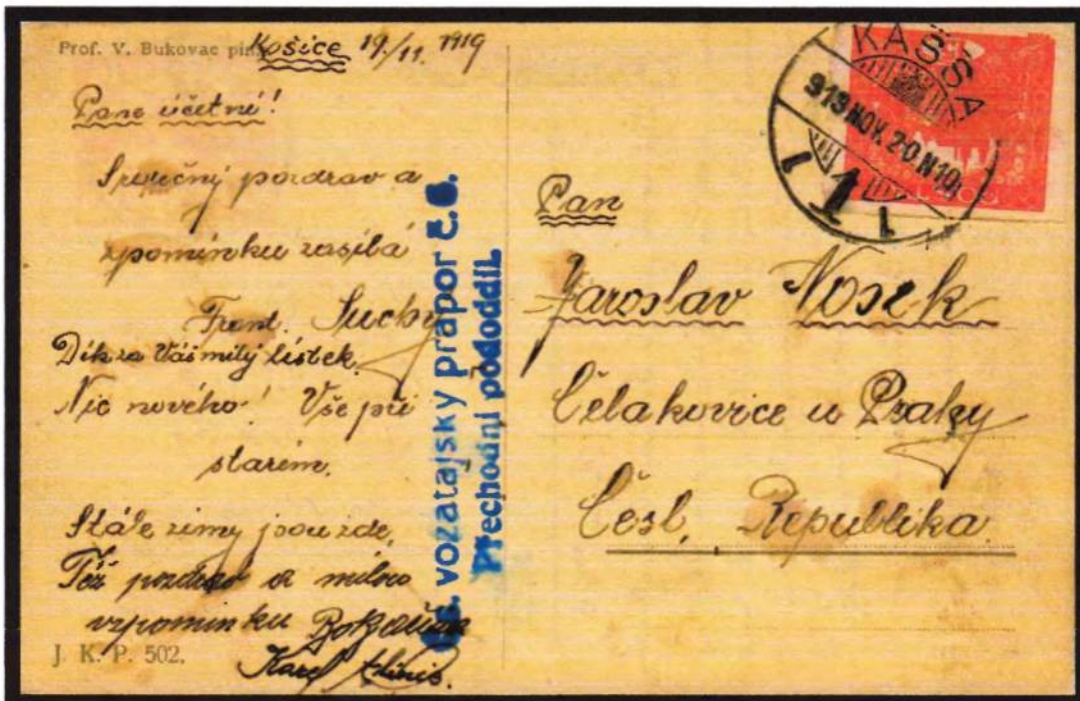 Prof. V. Bukovac
Košice 19./11. 1919
Pane účetní!
Srdečný pozdrav a
vzpomínku zasílá
Frant. Suchý
Dík za Váš milý lístek.
Nic nového! Vše při
starém.
Stále zimy jsou zde.
Též pozdrav a milou
vzpomínku
Karel
J. K. P. 502.
vozatajský prapor č.
Přechodní pododdíl
KASSA
919 NOV. 20. N10
1 1
Pan
Jaroslav Nosek
Čelakovice u Prahy
Česl. Republika